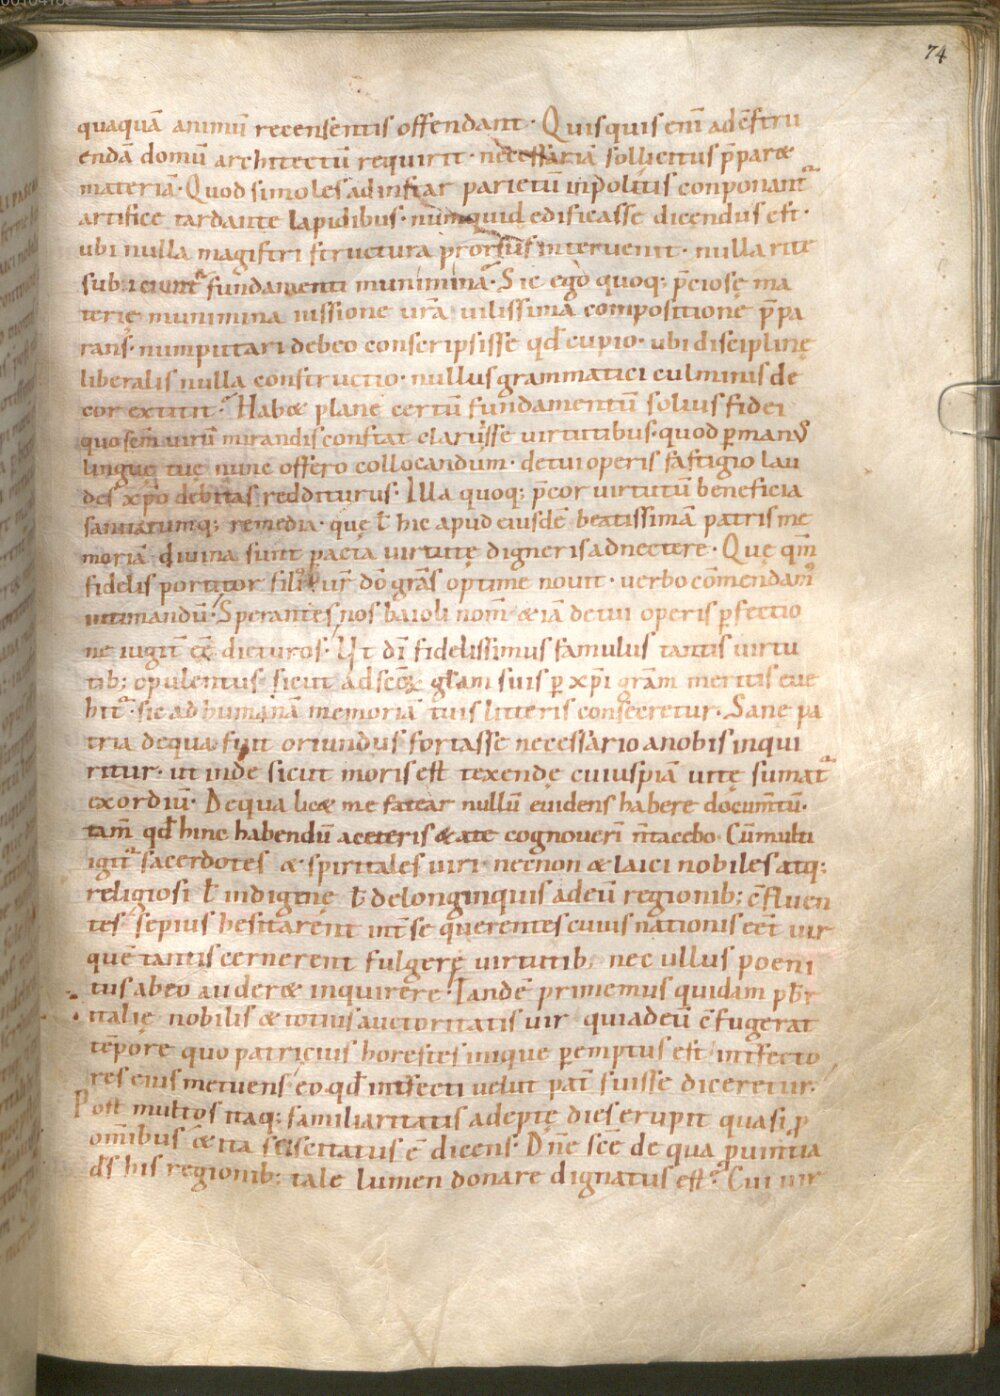 74
quaquā animū recensentis offendant· Quisquis enī ad ēstru
endā domū architectū requirit· necessariā sollicitus p̄paræ
materiā· Quod si moles ad instar parietū inpolitis conponant᷑
artifice tardante lapidibus· numquid edificasse dicendus est·
ubi nulla magistri structura prorsus intervenit· nulla rite
subiciunt᷑ fundamenti munimina᷑ Sic ego quoq; p̄ciosę ma
terię munimina iussione urā uilissimā compositionę p̄pa
rans· num puttari debeo conscripsisse qđ cupio· ubi disciplinę
liberalis nulla constructio· nullus grammatici culminis de
cor extitit᷑ Habæ plane certū fundamentū solius fidei
quo sēm uirū mirandis constat claruisse virtutibus· quod p̱ manꝰ
linguę tuę nunc offero collocandum· de tui operis fastigio lau
des xp̄o debitas redditurus· Illa quoq; p̄cor virtutū beneficia
sanitatumq; remedia· quę ł hic apud eiusdē beatissimā patris me
moriā divina sunt pacta virtutę digneris adnectere· Que qm̄
fidelis portitor filiꝰ ur̄ dō grās optime novit· verbo cōmendamꝰ
intimandū· Sperantes nos baioli nom̄ & iā de tui operis p̱fectio
ne iugit᷑ ēē dicturos· Ut dī fidelissimus famulus tantis virtu
tib; opulentus· sicut ad scōꝝ głam suis p̱ xp̄i gram meritis eue
hit᷑· sic ad humanā memoriā tuis litteris consecretur· Sane pa
tria de qua fuit oriundus fortasse necessario a nobis inqui
ritur· ut inde sicut moris est texendę cuiuspiā uitę sumat᷑
exordiū· De qua licæ me fatear nullū euidens habere documtū·
tam̄ qđ hinc habendū a ceteris & a te cognoveri n̄ tacebo· Cū multi
igit᷑ sacerdotes & spiritales uiri necnon & laici nobiles atq;
religiosi ł indigenę ł de longinquis ad eū regionib; c̄fluen
tes sepius hesitarent int᷑ se querentes cuius nationis eēt uir
quē tantis cernerent fulgerę virtutib; nec ullus poeni
tus ab eo auderæ inquirere· Tandē primemus quidam p̄br
italię nobilis & totius auctoritatis uir qui ad eū c̄fugerat
tēpore quo patricius horestes inique p̱emptus est int᷑fecto
res eius metuens eo qđ int᷑fecti velut pat᷑ fuisse diceretur·
Post multos itaq; familiaritatis adeptę dies erupit quasi ꝓ
om̄ibus & ita scisscitatus ē dicens· Dn̄e sce de qua ꝓuintia
dś his regionib; tale lumen donare dignatus est᷑ Cui uir